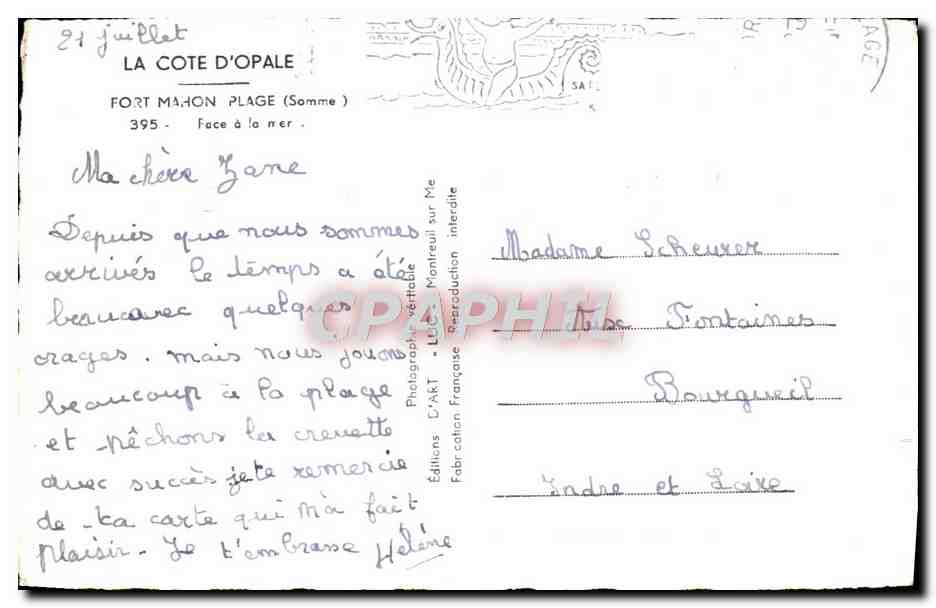 21 juillet
LA COTE D'OPALE
FORT MAHON PLAGE (Somme)
395 - Face à la mer.
Ma chère Zane
Depuis que nous sommes
arrivés le temps a été
beau avec quelques
orages. mais nous jouons
beaucoup à la plage
et pêchons la crevette
avec succès je te remercie
de ta carte qui m'a fait
plaisir. Je t'embrasse Hélène
Photographie véritable
Éditions D'ART - LUC - Montreuil sur Me
Fabrication Française Reproduction interdite
Madame Scheurer
Fontaines
Bourgueil
Indre et Loire
CPAPHIL
AGE